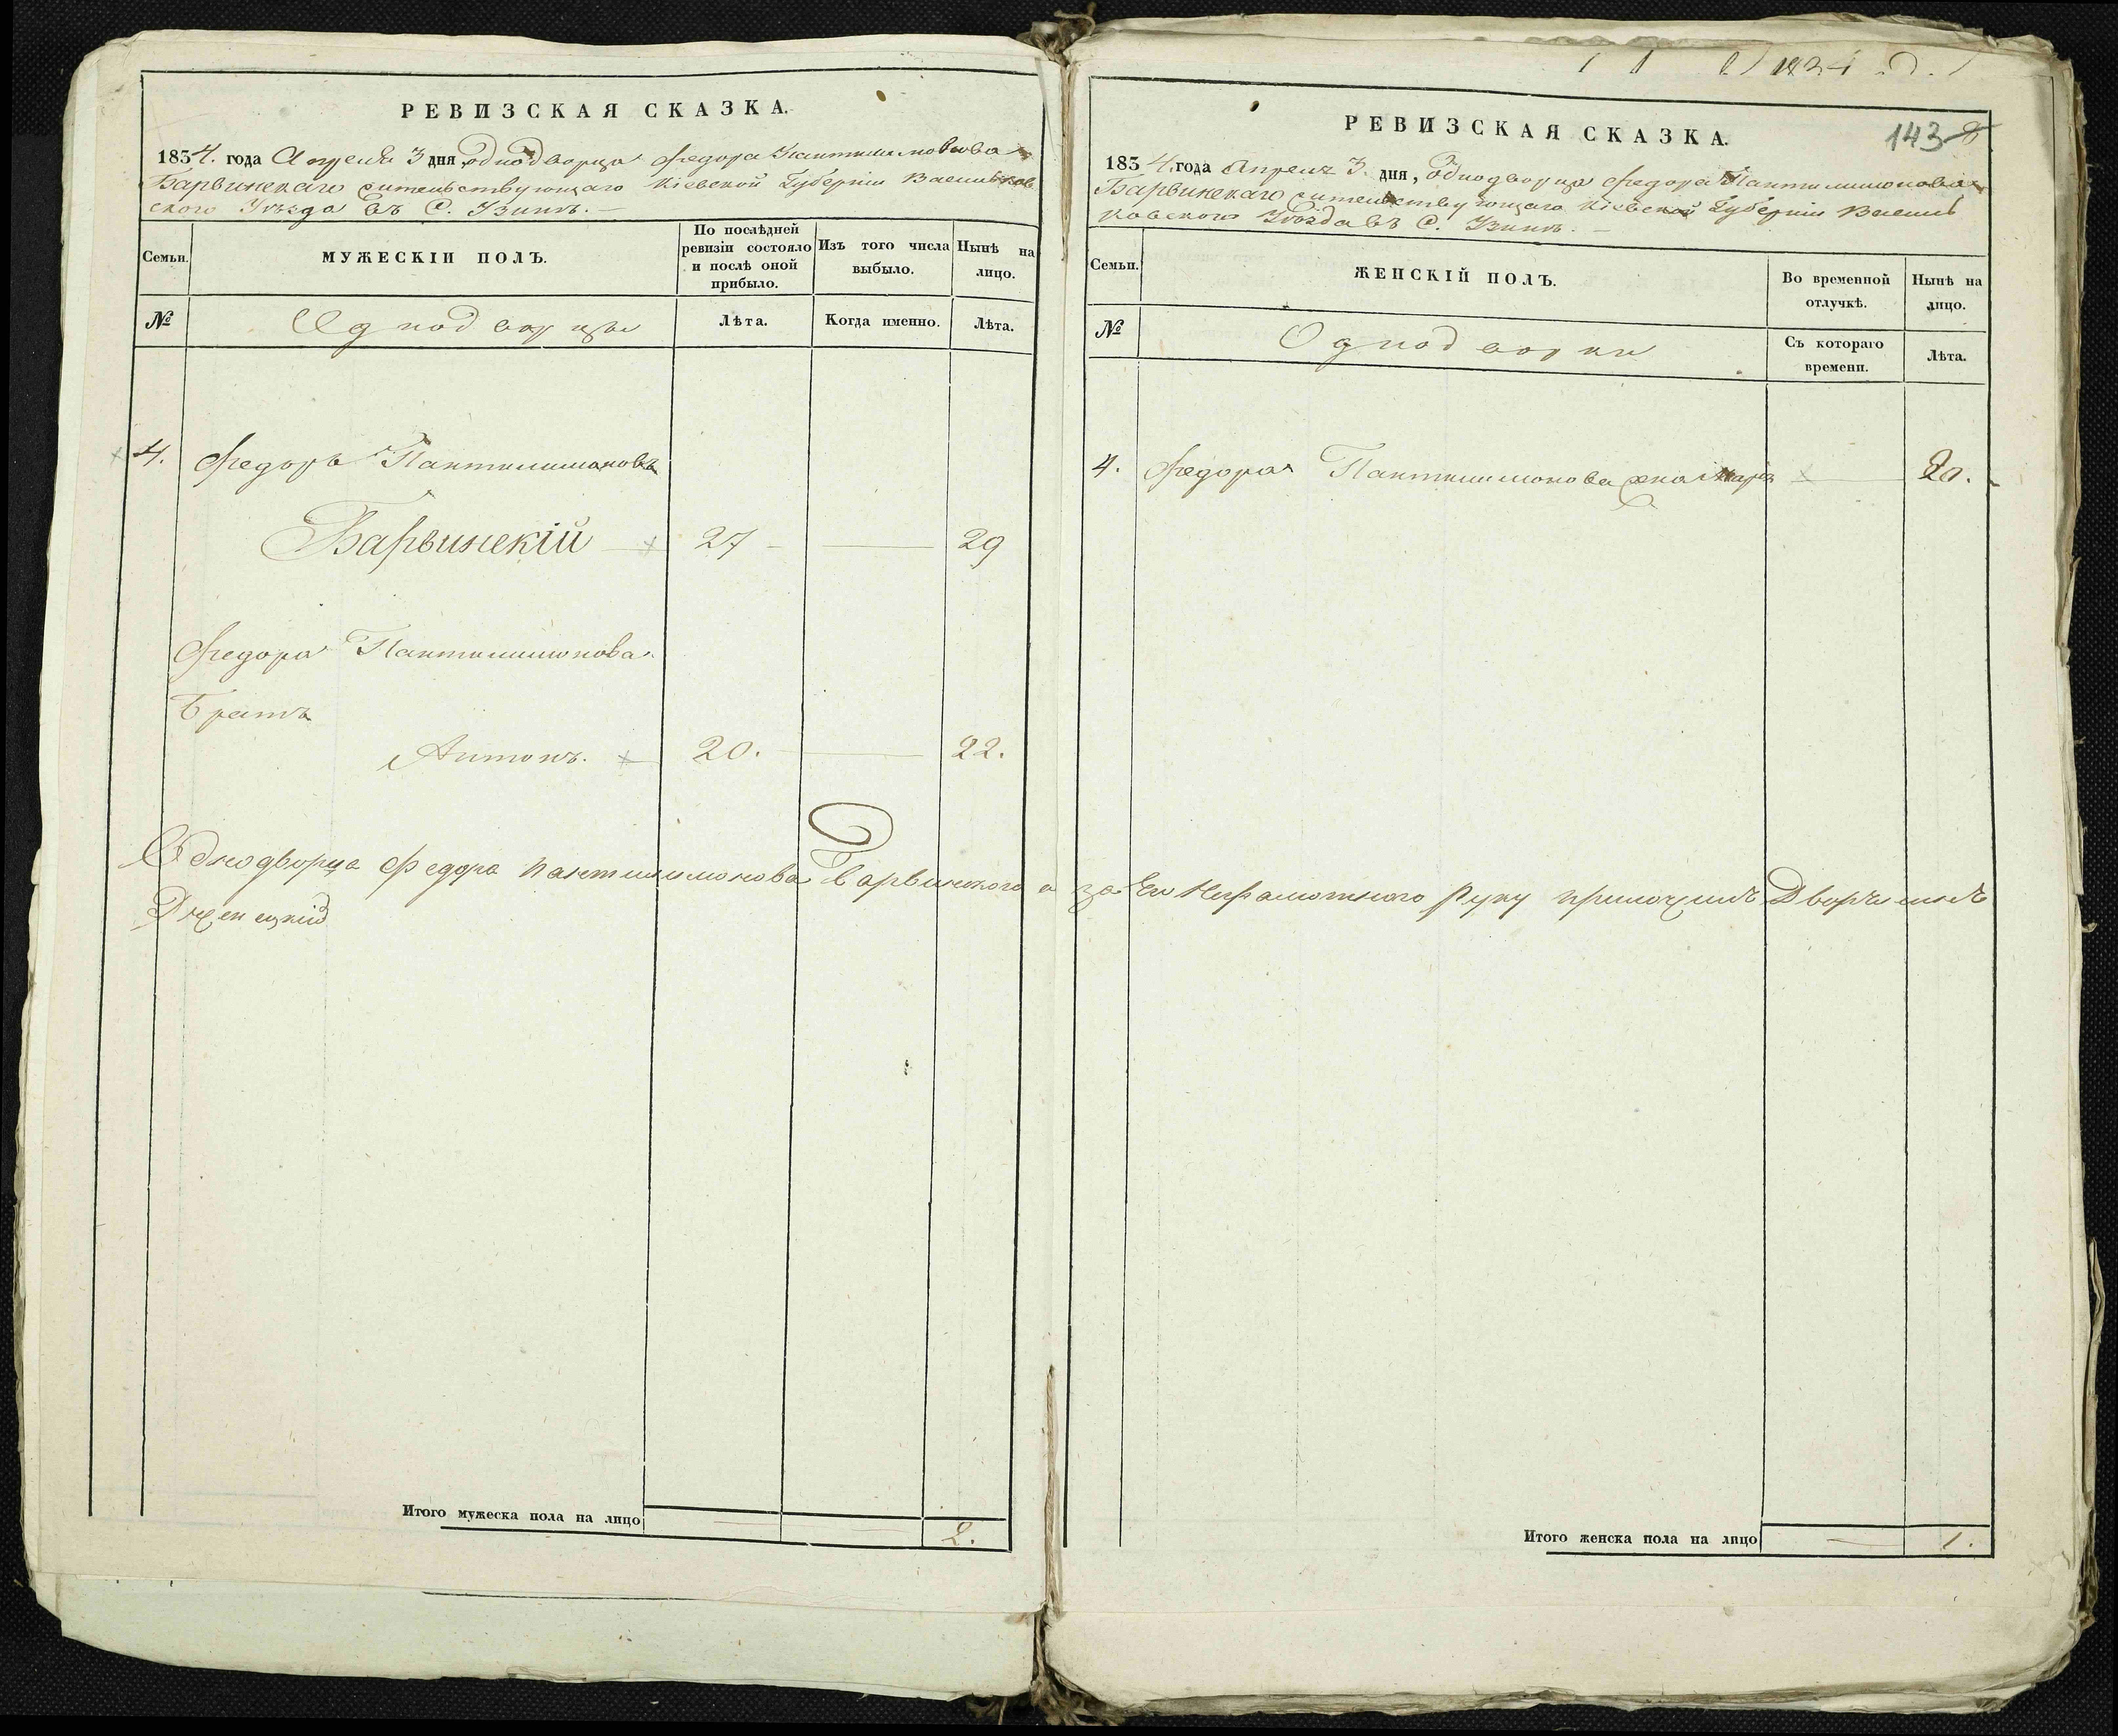 РЕВИЗСКАЯ СКАЗКА.
1834. года Апреля 3 дня однодворца Федора Пантилимонова
Барвинскаго жительствующаго Кіевской Губерніи Васильков
ского Уѣзда въ С. Узинѣ.
Семьи.
МУЖЕСКІЙ ПОЛЪ.
По послѣдней ревизіи состояло и послѣ оной прибыло.
Изъ того числа выбыло.
Нынѣ на лицо.
№
Однодворцы
Лѣта.
Когда именно.
Лѣта.
4. Федоръ Пантилимоновъ
Барвинскій 27 29
Федора Пантилимонова
Братъ
Антонъ. 20. 22.
Однодворца Федора Пантилимонова Барвинского а за его Неграмотного Руку приложилъ Дворянинъ
Итого мужеска пола на лицо 2.
143
РЕВИЗСКАЯ СКАЗКА.
1834 года Апреля 3. дня, Однодворца Федора Пантилимонова
Барвинскаго жительствующаго Кіевской Губерніи Василь
ковского Уѣзда въ С. Узинѣ.
Семьи.
ЖЕНСКІЙ ПОЛЪ.
Во временной отлучкѣ.
Нынѣ на лицо.
№
Однодворки
Съ котораго времени.
Лѣта.
4. Федора Пантилимонова жена Марія 20.
Итого женска пола на лицо 1.